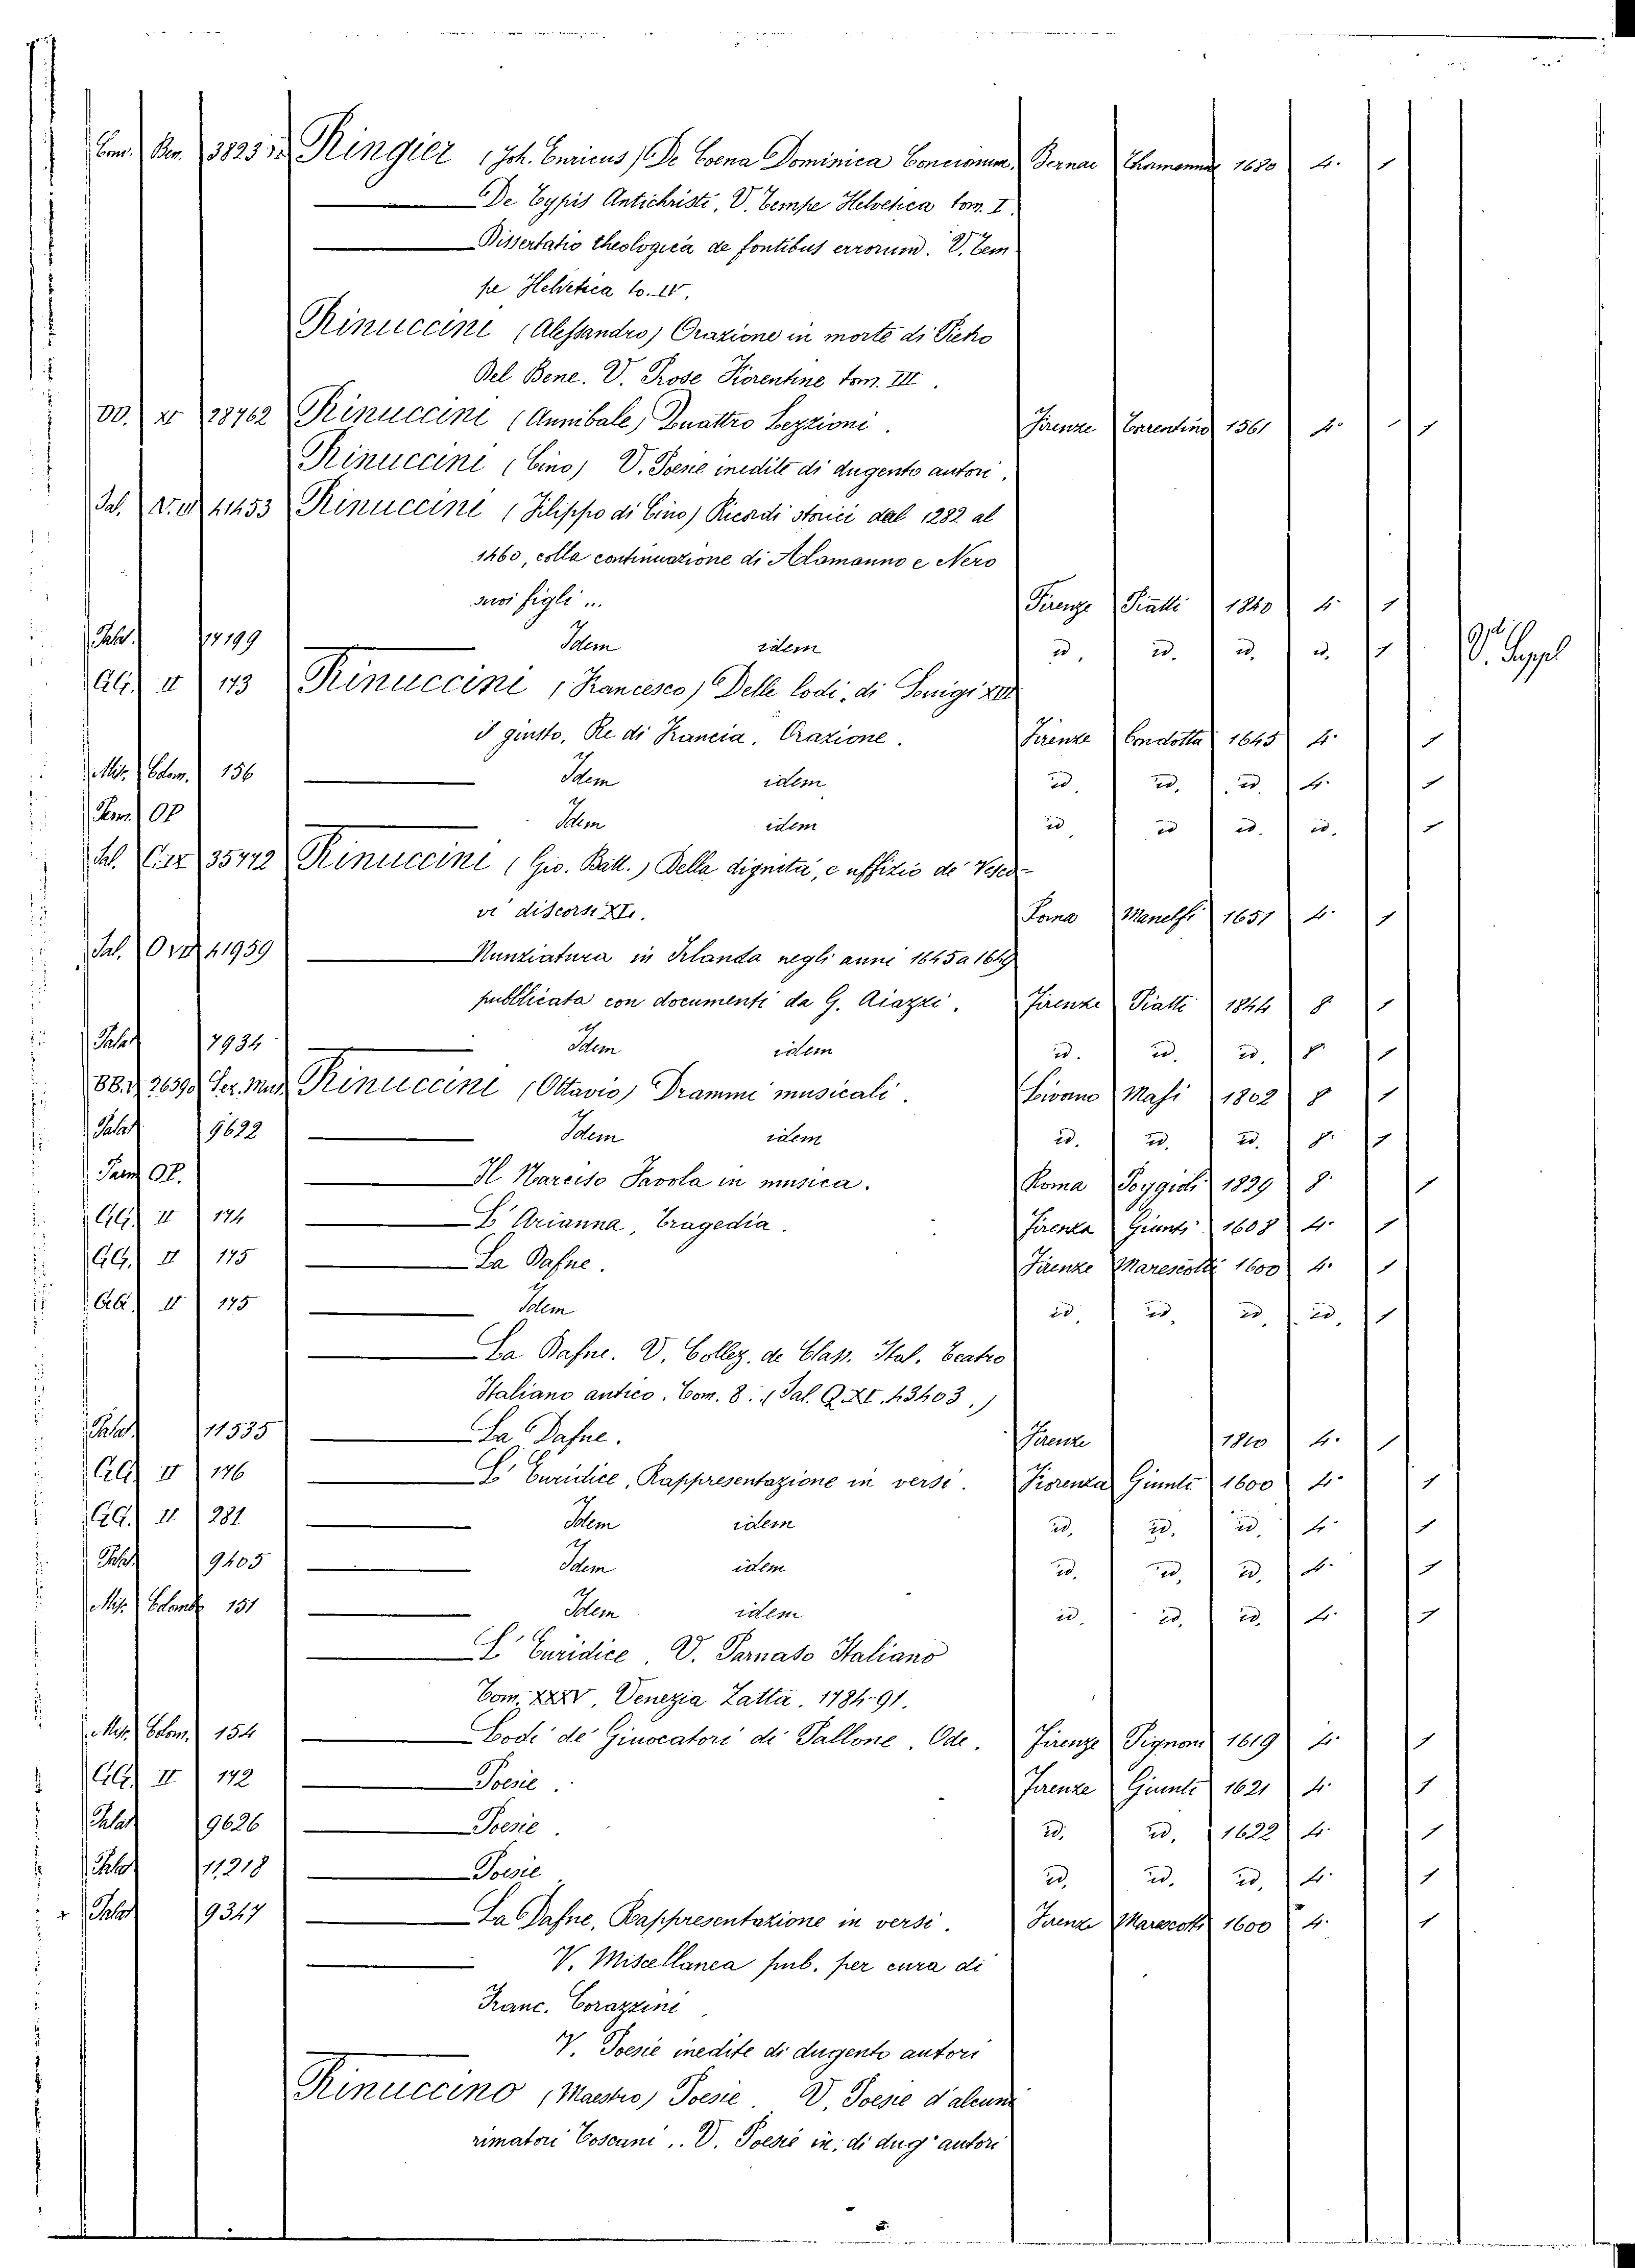 Ringier (Joh. Enricus) De Coena Dominica Concionum. Bernae 1680 4. 1
De Typis Antichristi, V. Tempe Helvetica tom. I.
Dissertatio theologica de fontibus errorum. V. Tem
pe Helvetica to. IV.
Rinuccini (Alessandro) Orazione in morte di Piero
Del Bene. V. Prose Fiorentine tom. III.
28762 Rinuccini (Annibale) Quattro Lezzioni. Firenze Torrentino 1561 4. 1
Rinuccini (Cino) V. Poesie inedite di dugento autori.
Rinuccini (Filippo di Cino) Ricordi storici dal 1282 al
1460, colla continuazione di Alamanno e Neri
suoi figli ... Firenze Piatti 1840 4. 1
Palat. 14199 Idem idem id. id. id. id. 1 V. Suppl
II 173 Rinuccini (Francesco) Delle lodi di Luigi XIII
il giusto, Re di Francia. Orazione. Firenze Condotta 1645 4. 1
Mis. Colom. 156 Idem idem id. id. id. 4. 1
Idem idem id id id. id. 1
35772 Rinuccini (Gio. Batt.) Della dignità, e uffizio de' Vesco-
vi discorsi XI. Roma Manelfi 1651 4. 1
Sal. 41959 Nunziatura in Irlanda negli anni 1645 a 1649
pubblicata con documenti da G. Aiazzi. Firenze Piatti 1844 8 1
Palat 7934 Idem idem id. id. id. 8. 1
Rinuccini (Ottavio) Drammi musicali. Livorno Masi 1802 8 1
Palat 9622 Idem idem id. id. id. 8. 1
Il Narciso Favola in musica. Roma Poggioli 1829 8. 1
II 174 L'Arianna, Tragedia. Firenze Giunti 1608 4. 1
II 175 La Dafne. Firenze Marescotti 1600 4. 1
II 175 Idem id. id. id. id. 1
La Dafne. V. Collez. de Class. Ital. Teatro
Italiano antico. Tom. 8. (Sal. Q. XI. 43403.)
Palat 11535 La Dafne. Firenze 1810 4. 1
II 176 L'Euridice, Rappresentazione in versi. Fiorenza Giunti 1600 4. 1
II 281 Idem idem id. id. id. 4. 1
Palat 9405 Idem idem id. id. id. 4. 1
Mis. Colomb 151 Idem idem id. id. id. 4. 1
L'Euridice. V. Parnaso Italiano
Tom. XXXV. Venezia Zatta. 1784-91.
Mis. Colom. 154 Lodi de' Giuocatori di Pallone. Ode. Firenze Pignoni 1619 4. 1
II 172 Poesie. Firenze Giunti 1621 4. 1
Palat 9626 Poesie. id. id. 1622 4. 1
Palat 11218 Poesie id. id. id. 4. 1
Palat 9347 La Dafne, Rappresentazione in versi. Firenze Marescotti 1600 4. 1
V. Miscellanea pub. per cura di
Franc. Corazzini
V. Poesie inedite di dugento autori
Rinuccino (Maestro) Poesie. V. Poesie d'alcuni
rimatori Toscani.. V. Poesie in. di dug.° autori